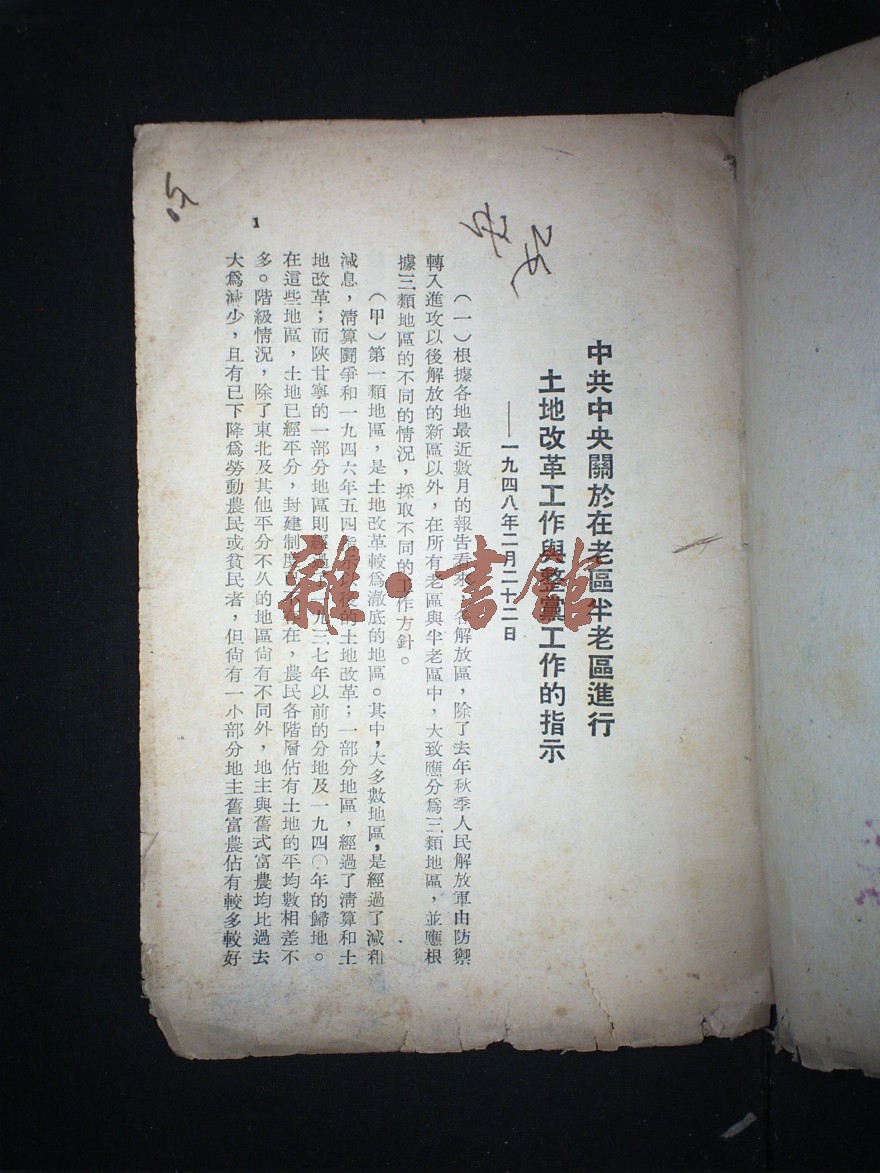 中共中央關於在老區半老區進行
土地改革工作與整黨工作的指示
——一九四八年二月二十二日
（一）根據各地最近數月的報告看來，各解放區，除了去年秋季人民解放軍由防禦
轉入進攻以後解放的新區以外，在所有老區與半老區中，大致應分爲三類地區，並應根
據三類地區的不同的情況，採取不同的工作方針。
（甲）第一類地區，是土地改革較爲澈底的地區。其中，大多數地區，是經過了減租
減息，清算鬭爭和一九四六年五四指示以後的土地改革；一部分地區，經過了清算和土
地改革；而陝甘寧的一部分地區則經過了一九三七年以前的分地及一九四〇年的歸地。
在這些地區，土地已經平分，封建制度已不存在，農民各階層佔有土地的平均數相差不
多。階級情況，除了東北及其他平分不久的地區尙有不同外，地主與舊式富農均比過去
大爲減少，且有已下降爲勞動農民或貧民者，但尙有一小部分地主舊富農佔有較多較好
1
雜·書館